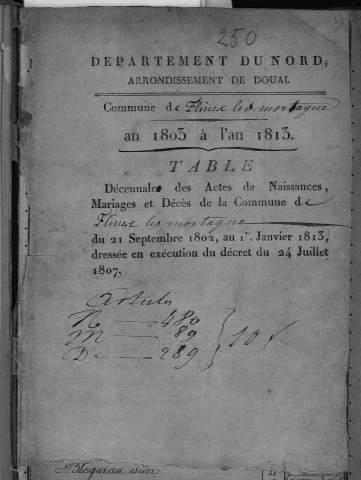 250
DEPARTEMENT DU NORD,
ARRONDISSEMENT DE DOUAI.
Commune de Flines les mortagne
an 1803 à l'an 1813.
TABLE
Décennale des Actes de Naissances,
Mariages et Décès de la Commune de
Flines les mortagne
du 21 Septembre 1802, au 1er. Janvier 1813,
dressée en exécution du décret du 24 Juillet
1807.
Articles
N — 480
M — 89
D — 289
10 f